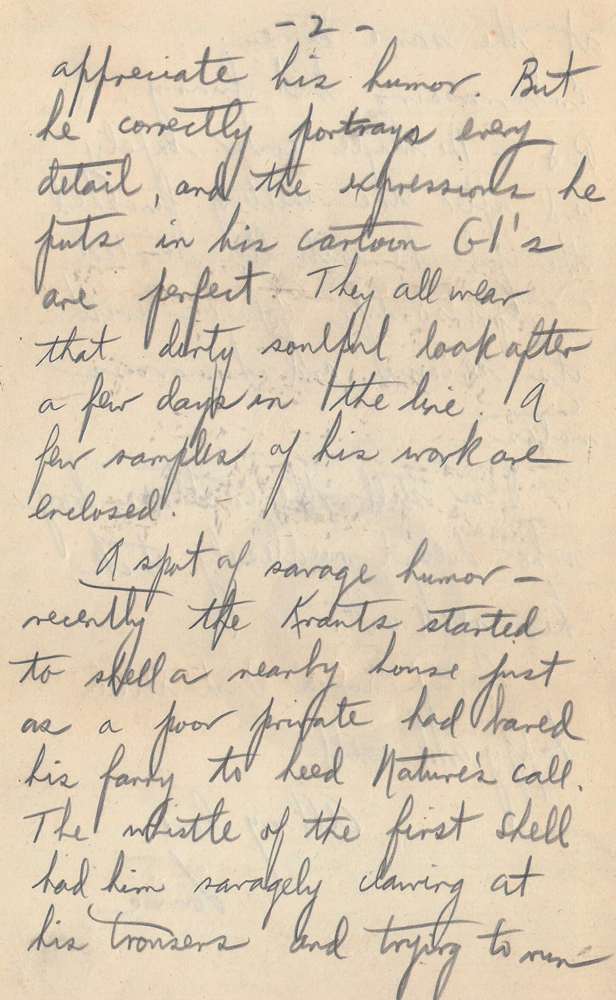 - 2 -
appreciate his humor. But
he correctly portrays every
detail, and the expressions he
puts in his cartoon GI's
are perfect. They all wear
that dirty soulful look after
a few days in the line. A
few samples of his work are
enclosed.
A spot of savage humor -
recently the Krauts started
to shell a nearby house just
as a poor private had bared
his fanny to heed Nature's call.
The whistle of the first shell
had him savagely clawing at
his trousers and trying to run